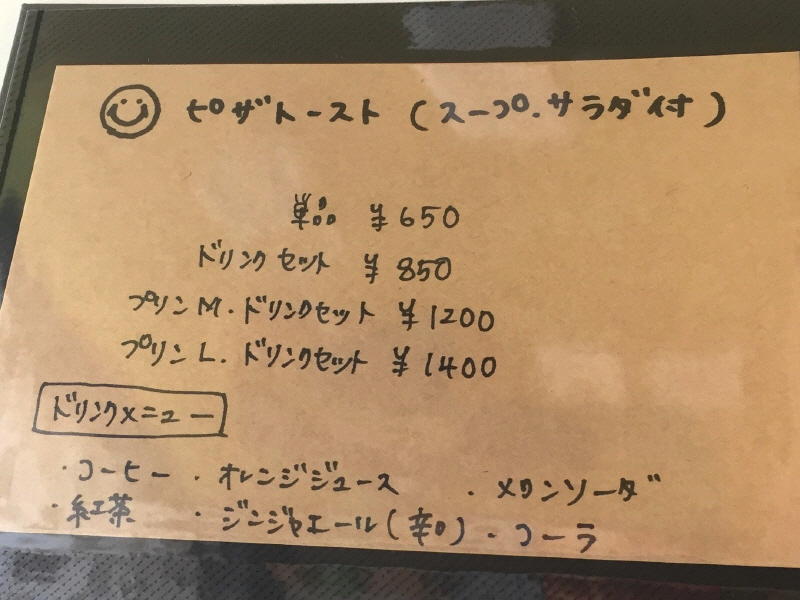 ピザトースト (スープ.サラダ付)
単品 ¥650
ドリンクセット ¥850
プリンM.ドリンクセット ¥1200
プリンL.ドリンクセット ¥1400
ドリンクメニュー
・コーヒー ・オレンジジュース ・メロンソーダ
・紅茶 ・ジンジャエール(辛口) ・コーラ